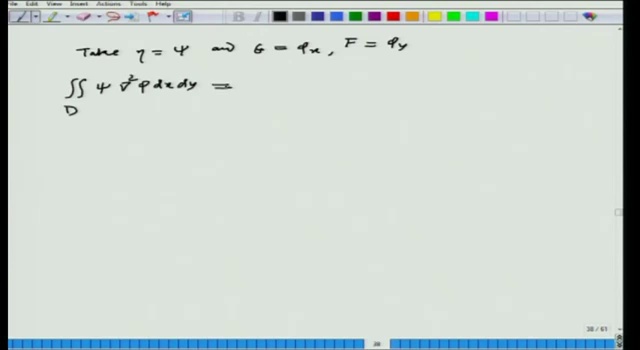 File Edit View Insert Actions Tools Help
Take η = ψ and G = φx, F = φy
∬ ψ ∇²φ dx dy =
D
38 / 61
38